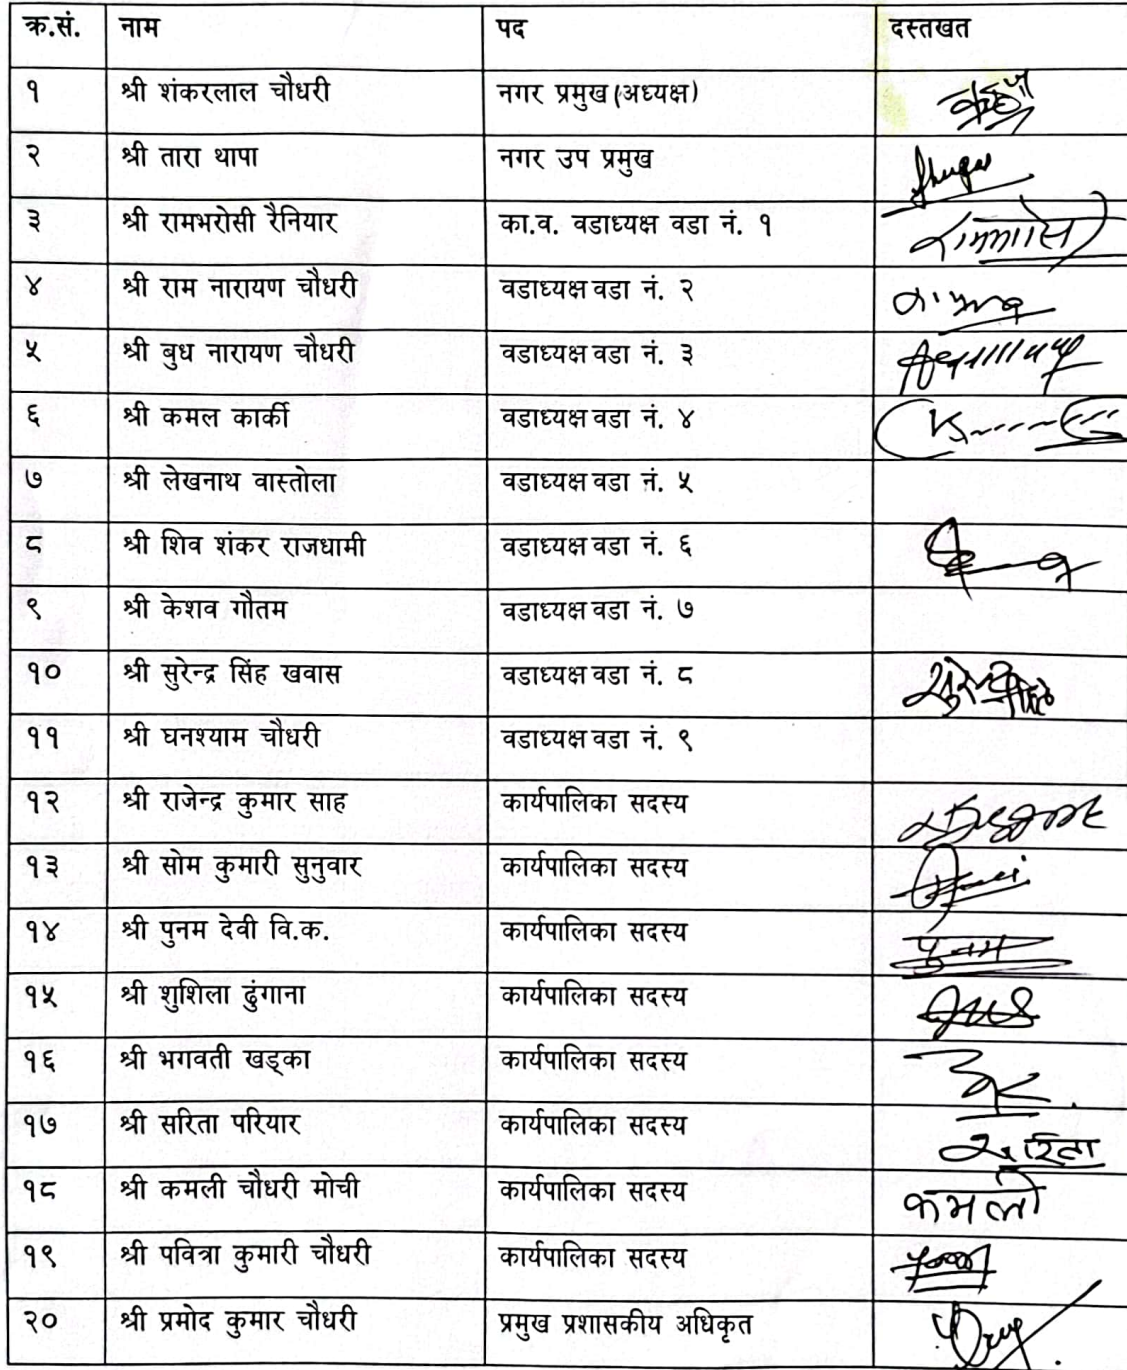 क्र.सं. नाम पद दस्तखत
१ श्री शंकरलाल चौधरी नगर प्रमुख(अध्यक्ष)
२ श्री तारा थापा नगर उप प्रमुख
३ श्री रामभरोसी रैनियार का.व. वडाध्यक्ष वडा नं. १
४ श्री राम नारायण चौधरी वडाध्यक्ष वडा नं. २
५ श्री बुध नारायण चौधरी वडाध्यक्ष वडा नं. ३
६ श्री कमल कार्की वडाध्यक्ष वडा नं. ४
७ श्री लेखनाथ वास्तोला वडाध्यक्ष वडा नं. ५
८ श्री शिव शंकर राजधामी वडाध्यक्ष वडा नं. ६
९ श्री केशव गौतम वडाध्यक्ष वडा नं. ७
१० श्री सुरेन्द्र सिंह खवास वडाध्यक्ष वडा नं. ८
११ श्री घनश्याम चौधरी वडाध्यक्ष वडा नं. ९
१२ श्री राजेन्द्र कुमार साह कार्यपालिका सदस्य
१३ श्री सोम कुमारी सुनुवार कार्यपालिका सदस्य
१४ श्री पुनम देवी वि.क. कार्यपालिका सदस्य पुनम
१५ श्री शुशिला ढुंगाना कार्यपालिका सदस्य
१६ श्री भगवती खड्का कार्यपालिका सदस्य
१७ श्री सरिता परियार कार्यपालिका सदस्य सरिता
१८ श्री कमली चौधरी मोची कार्यपालिका सदस्य कमली
१९ श्री पवित्रा कुमारी चौधरी कार्यपालिका सदस्य
२० श्री प्रमोद कुमार चौधरी प्रमुख प्रशासकीय अधिकृत